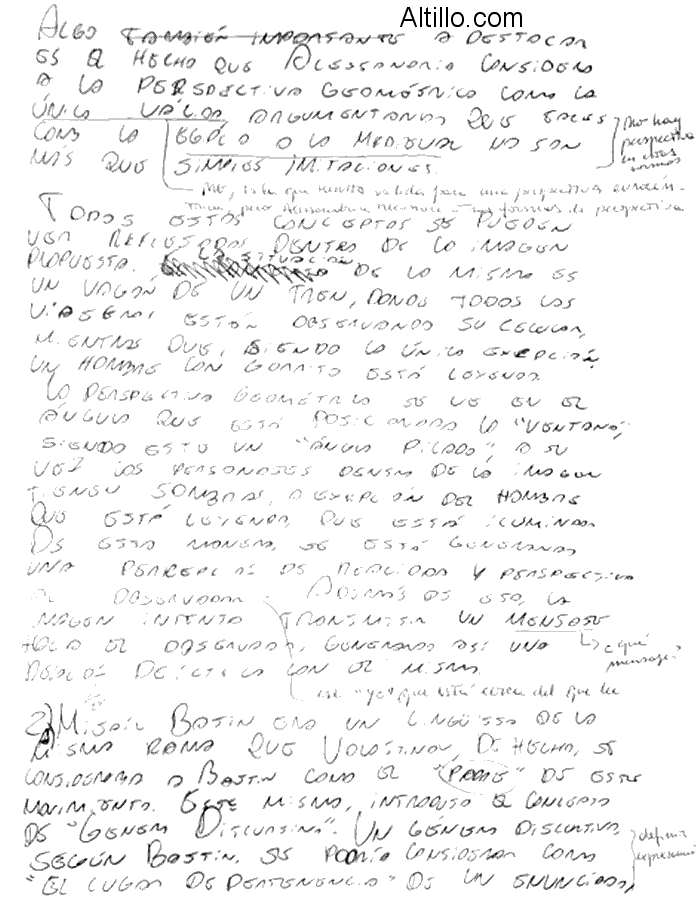 Altillo.com
ALGO TAMBIÉN IMPORTANTE A DESTACAR
ES EL HECHO QUE ALESSANDRIA CONSIDERA
A LA PERSPECTIVA GEOMÉTRICA COMO LA
ÚNICA VÁLIDA ARGUMENTANDO QUE TALES
COMO LA EGIPCIA O LA MEDIEVAL NO SON
MÁS QUE SIMPLES IMITACIONES.
No hay
perspectiva
en esas
formas
No, es la que resulta válida para una perspectiva
pero Alessandria reconoce otras formas de perspectiva
TODOS ESTOS CONCEPTOS SE PUEDEN
VER REFLEJADOS DENTRO DE LA IMAGEN
PROPUESTA. LA SITUACIÓN DE LA MISMA ES
UN VAGÓN DE UN TREN, DONDE TODOS LOS
ESTÁN OBSERVANDO SU CELULAR,
MIENTRAS QUE, SIENDO LA ÚNICA EXCEPCIÓN,
UN HOMBRE CON GORRITO ESTÁ LEYENDO.
LA PERSPECTIVA GEOMÉTRICA SE VE EN EL
ÁNGULO QUE ESTÁ POSICIONADA LA "VENTANA",
SIENDO ESTE UN "ÁNGULO PICADO", A SU
VEZ LOS PERSONAJES DENTRO DE LA IMAGEN
TIENEN SOMBRAS, A EXCEPCIÓN DEL HOMBRE
QUE ESTÁ LEYENDO, QUE ESTÁ ILUMINADO
DE ESTA MANERA, SE ESTÁ GENERANDO
UNA PERCEPCIÓN DE REALIDAD Y PERSPECTIVA
AL OBSERVADOR. ADEMÁS DE ESO, LA
IMAGEN INTENTA TRANSMITIR UN MENSAJE
HACIA EL OBSERVADOR, GENERANDO ASÍ UNA
¿qué
mensaje?
DEÍCTICA CON EL MISMO.
ese "yo" que está cerca del que lee
2) MIJAÍL BAJTÍN ERA UN LINGÜISTA DE LA
MISMA RAMA QUE VOLOSHINOV, DE HECHO, SE
CONSIDERABA A BAJTÍN COMO EL "PADRE" DE ESTE
MOVIMIENTO. ESTE MISMO, INTRODUJO EL CONCEPTO
DE "GÉNERO DISCURSIVO". UN GÉNERO DISCURSIVO,
SEGÚN BAJTÍN, SE PODRÍA CONSIDERAR COMO
definir
expresiones
"EL LUGAR DE PERTENENCIA" DE UN ENUNCIADO,